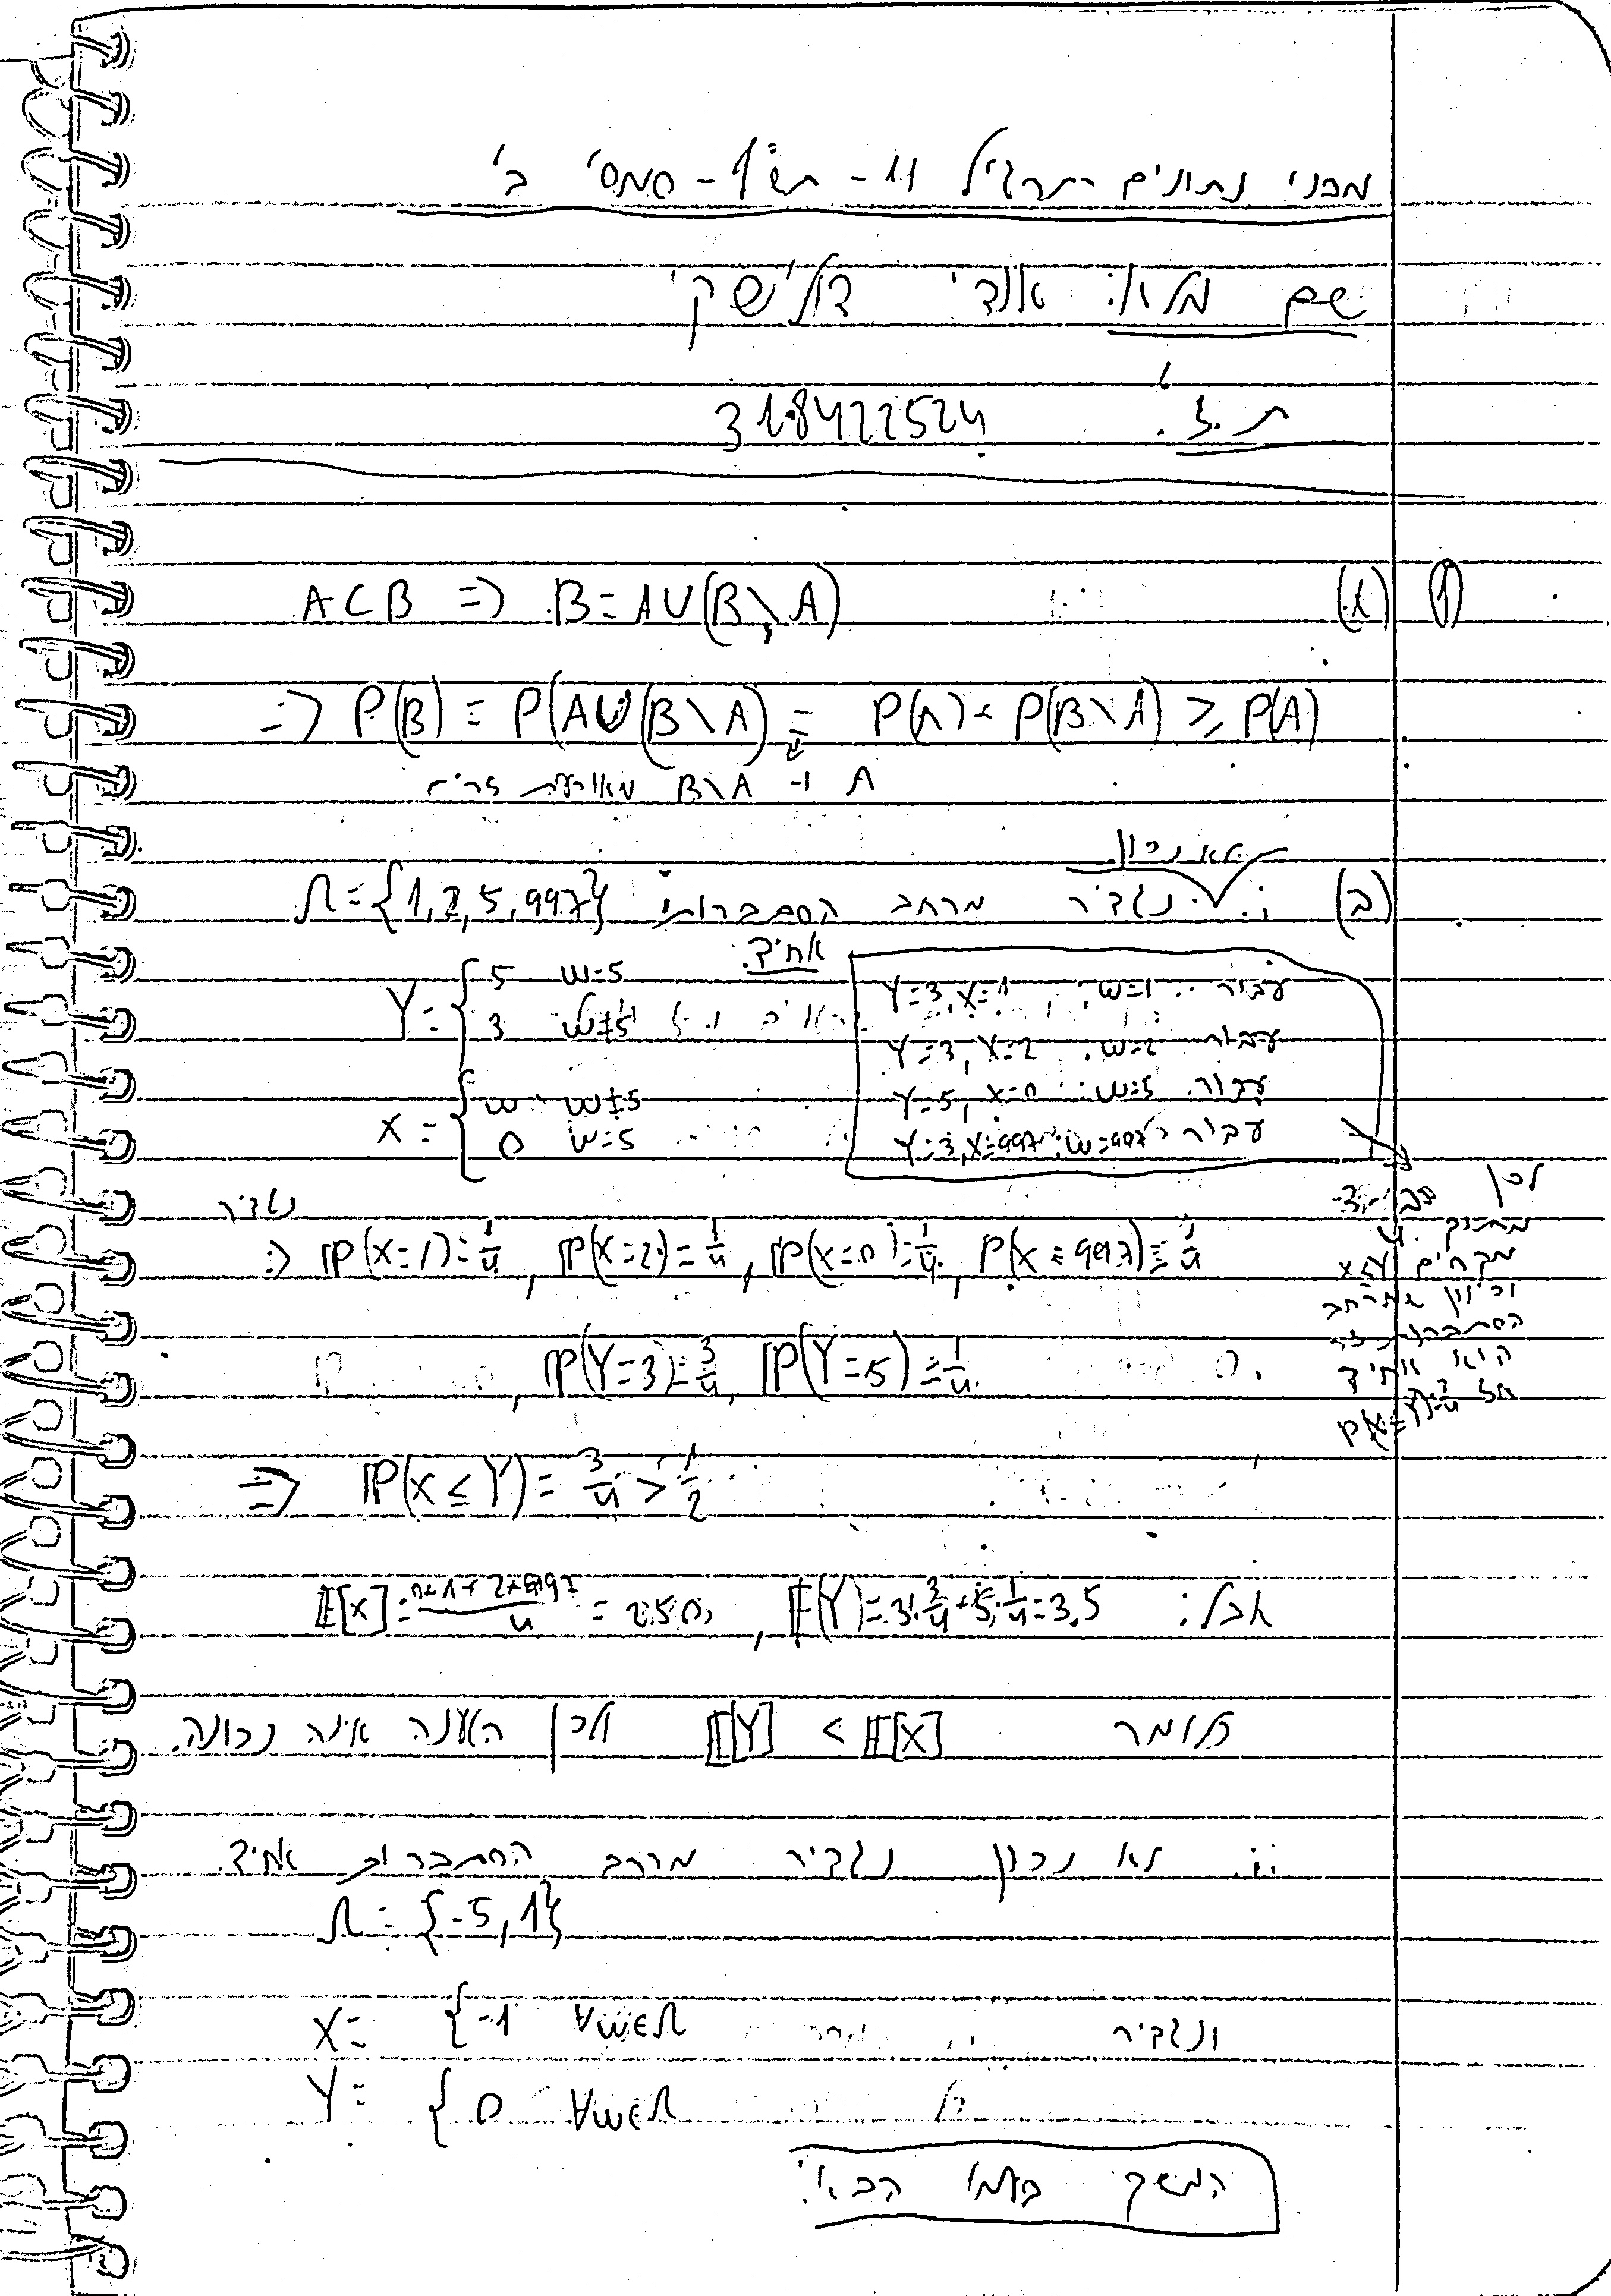 מבני נתונים תרגיל 11 - תש"ף - סמס' ב'
שם מלא: אודי דולינסקי
ת.ז. 318422524
(1) (א) A⊂B => B=A∪(B\A)
=> P(B) = P(A∪(B\A)) = P(A)+P(B\A) ≥ P(A)
A ו- B\A מאורעות זרים
לא נכון
(ב) i. נגדיר מרחב הסתברותי Ω={1,2,5,997}
אחיד.
Y= { 5 w=5
3 w≠5
X= { w w≠5
0 w=5
עבור w=1: Y=3, X=1
עבור w=2: Y=3, X=2
עבור w=5: Y=5, X=0
עבור w=997: Y=3, X=997
לכן
מתוך 4
מקרים X≤Y
וכיוון שמרחב
הסתברות זה
הוא אחיד
אז P(X≤Y)=3/4
נגדיר
=> ℙ(X=1)=1/4, ℙ(X=2)=1/4, ℙ(X=0)=1/4, P(X=997)=1/4
, ℙ(Y=3)=3/4, ℙ(Y=5)=1/4
=> ℙ(X≤Y)= 3/4 > 1/2
אבל: 𝔼[X]=(0+1+2+997)/4 = 250, 𝔼(Y)=3·3/4+5·1/4=3.5
כלומר 𝔼[Y] < 𝔼[X] ולכן הטענה אינה נכונה.
ii. לא נכון נגדיר מרחב הסתברות אחיד.
Ω = {-5,1}
ונגדיר X= {-1 ∀w∈Ω
Y= { 0 ∀w∈Ω
המשך בעמוד הבא